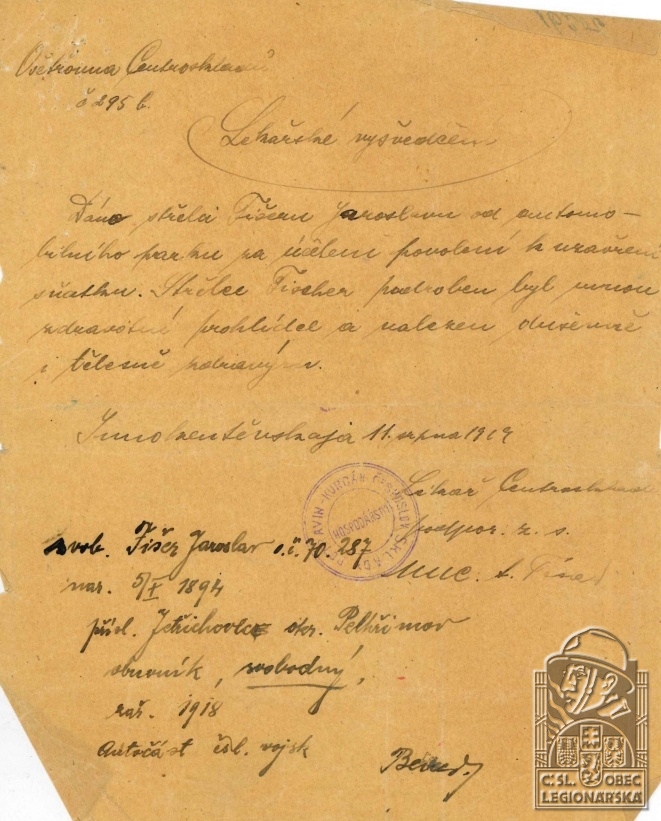 Ošetřovna Centroskladů
č 295 b.
Lékařské vysvědčení
Dáno střelci Fišeru Jaroslavu od automo-
bilního parku za účelem povolení k uzavření
sňatku. Střelec Fischer podroben byl mnou
zdravotní prohlídce a nalezen duševně
i tělesně zdravým.
Innokentěvskaja 11. srpna 1919
Lékař Centroskladů
podpor. z. s.
MUC. A.
HOSPODÁŘSTVÍ
svob. Fišer Jaroslav o.č. 70.287
nar. 5/I 1894
přísl. Jetřichovice okr. Pelhřimov
obuvník, svobodný,
zař. 1918
Autočást čsl. vojsk
Č:SL. OBEC
LEGIONÁŘSKÁ